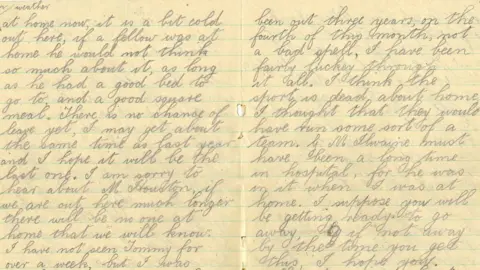 weather
at home now, it is a bit cold
out here, if a fellow was at
home he would not think
so much about it, as long
as he had a good bed to
go to, and a good square
meal. There is no change of
leave yet, I may get about
the same time as last year
and I hope it will be the
last one. I am sorry to
hear about M Houston, if
we are out here much longer
there will be no one at
home that we will know.
I have not seen Tommy for
over a week, but I was
been out three years, on the
fourth of this month, not
a bad spell, I have been
fairly luckey through
it all. I think the
sport is dead about home
I thought that they would
have run some sort of a
team. must
have been a long time
in hospital, for he was
in it when I was at
home. I suppose you will
be getting ready to go
away, if not away
by the time you get
this, I hope you